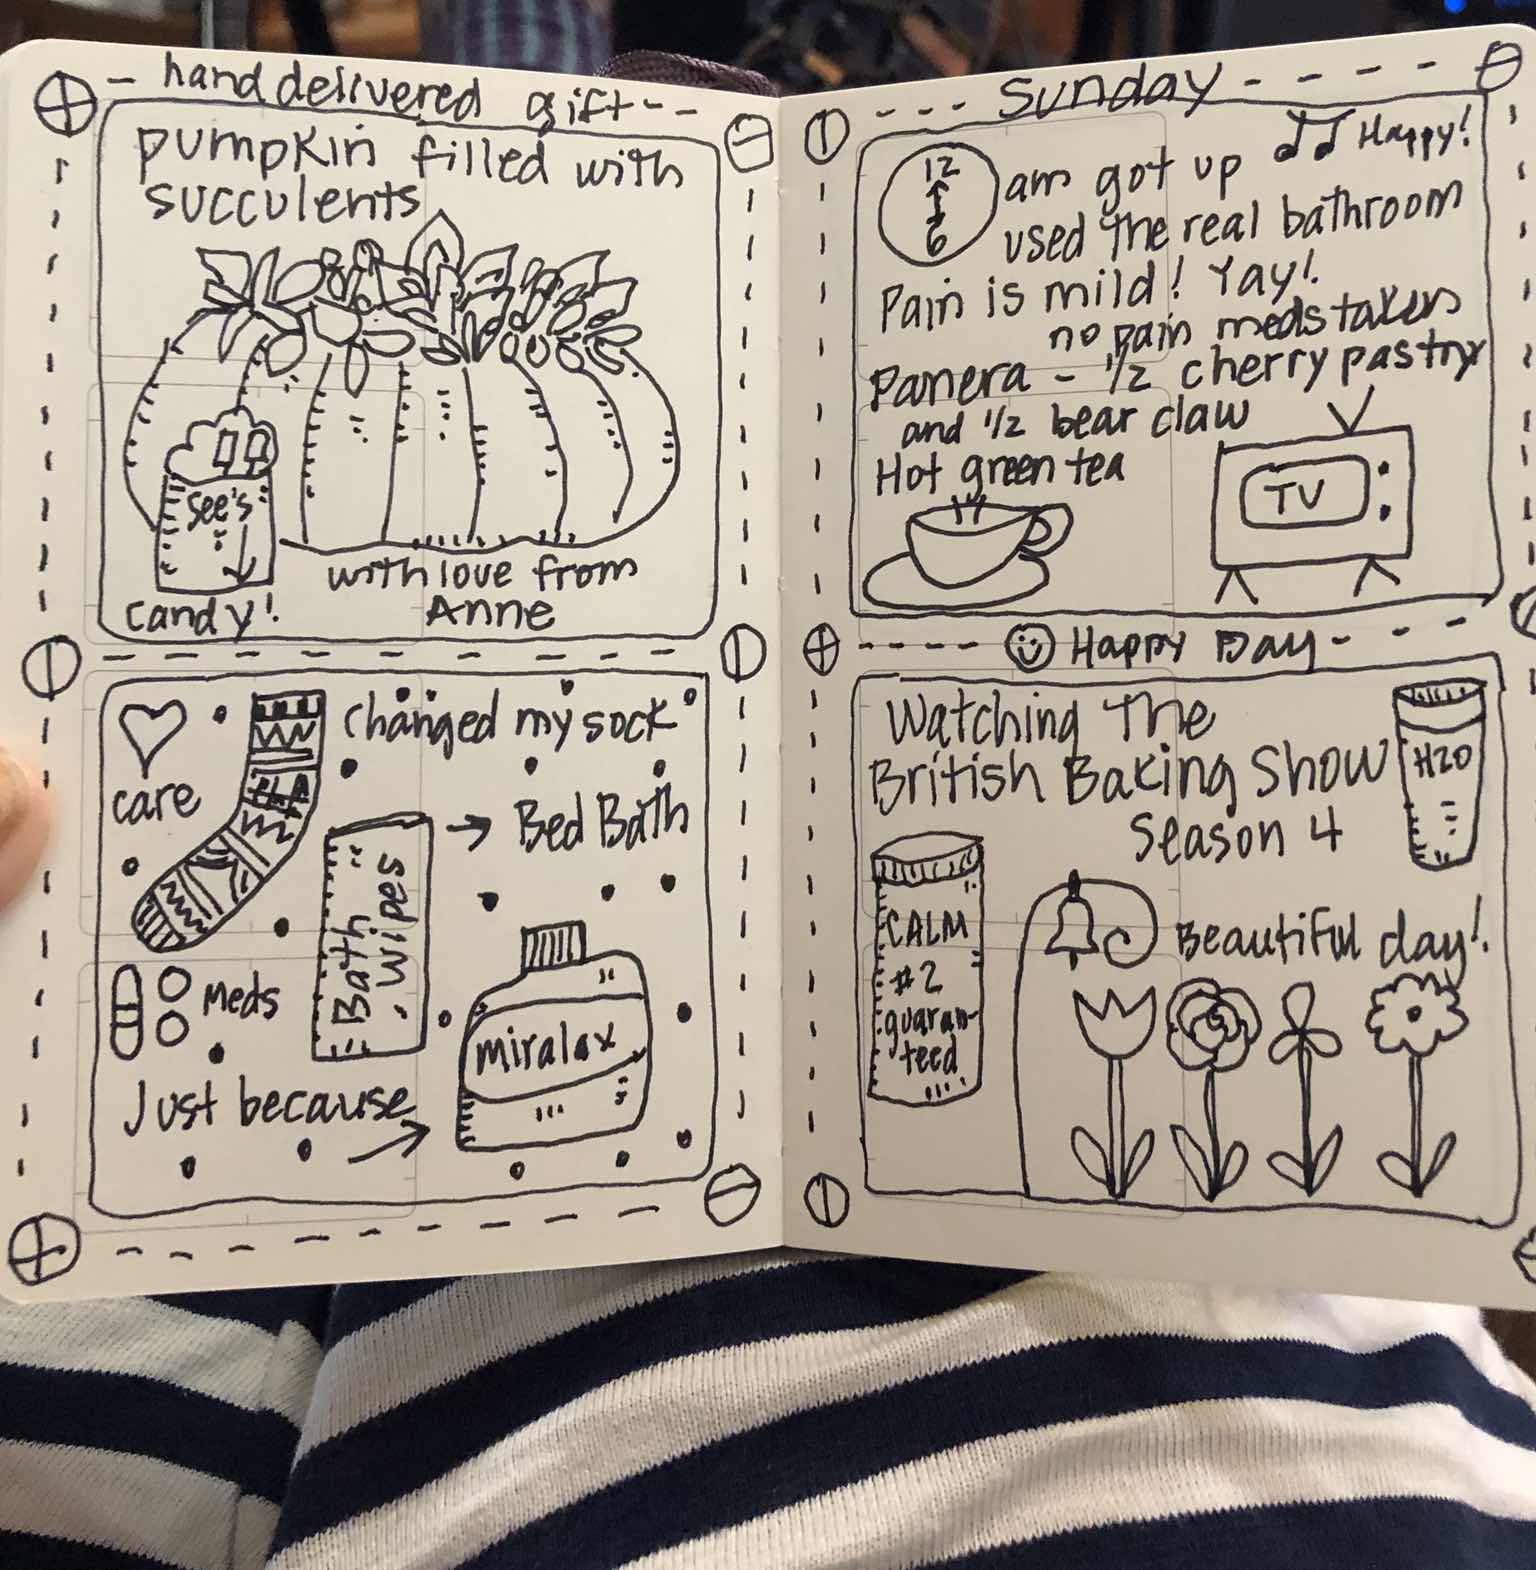 hand delivered gift
pumpkin filled with
succulents
See's
candy!
with love from
Anne
care
changed my sock
Bed Bath
Bath wipes
Meds
miralax
Just because
Sunday
Happy!
12
6
am got up
used the real bathroom
Pain is mild! Yay!
no pain meds taken
Panera - 1/2 cherry pastry
and 1/2 bear claw
Hot green tea
TV
Happy Day
Watching The
British Baking Show
Season 4
H2O
CALM
#2
guaran-
teed
Beautiful day!